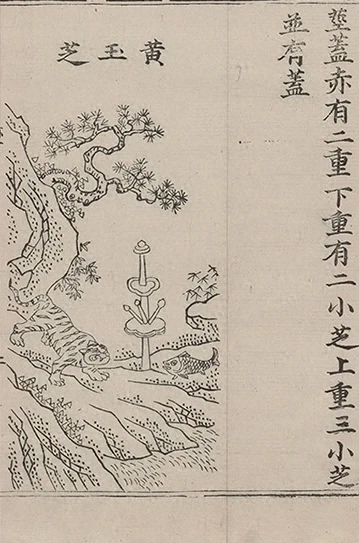 莖蓋赤有二重下重有二小芝上重三小芝
並有蓋
黄玉芝